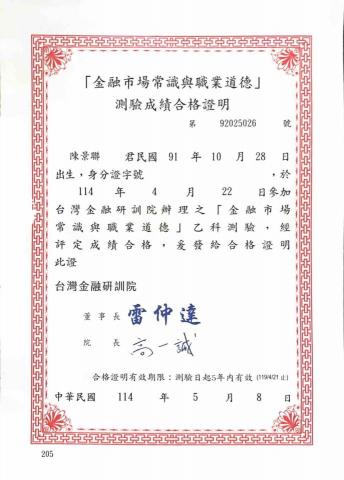 「金融市場常識與職業道德」
測驗成績合格證明
第 92025026 號
陳景聯 君民國 91 年 10 月 28 日
出生，身分證字號 ，於
114 年 4 月 22 日參加
台灣金融研訓院辦理之「金融市場
常識與職業道德」乙科測驗，經
評定成績合格，爰發給合格證明
此證
台灣金融研訓院
董事長 雷仲達
院長 高一誠
合格證明有效期限：測驗日起5年內有效 (119/4/21 止)
中華民國 114 年 5 月 8 日
205